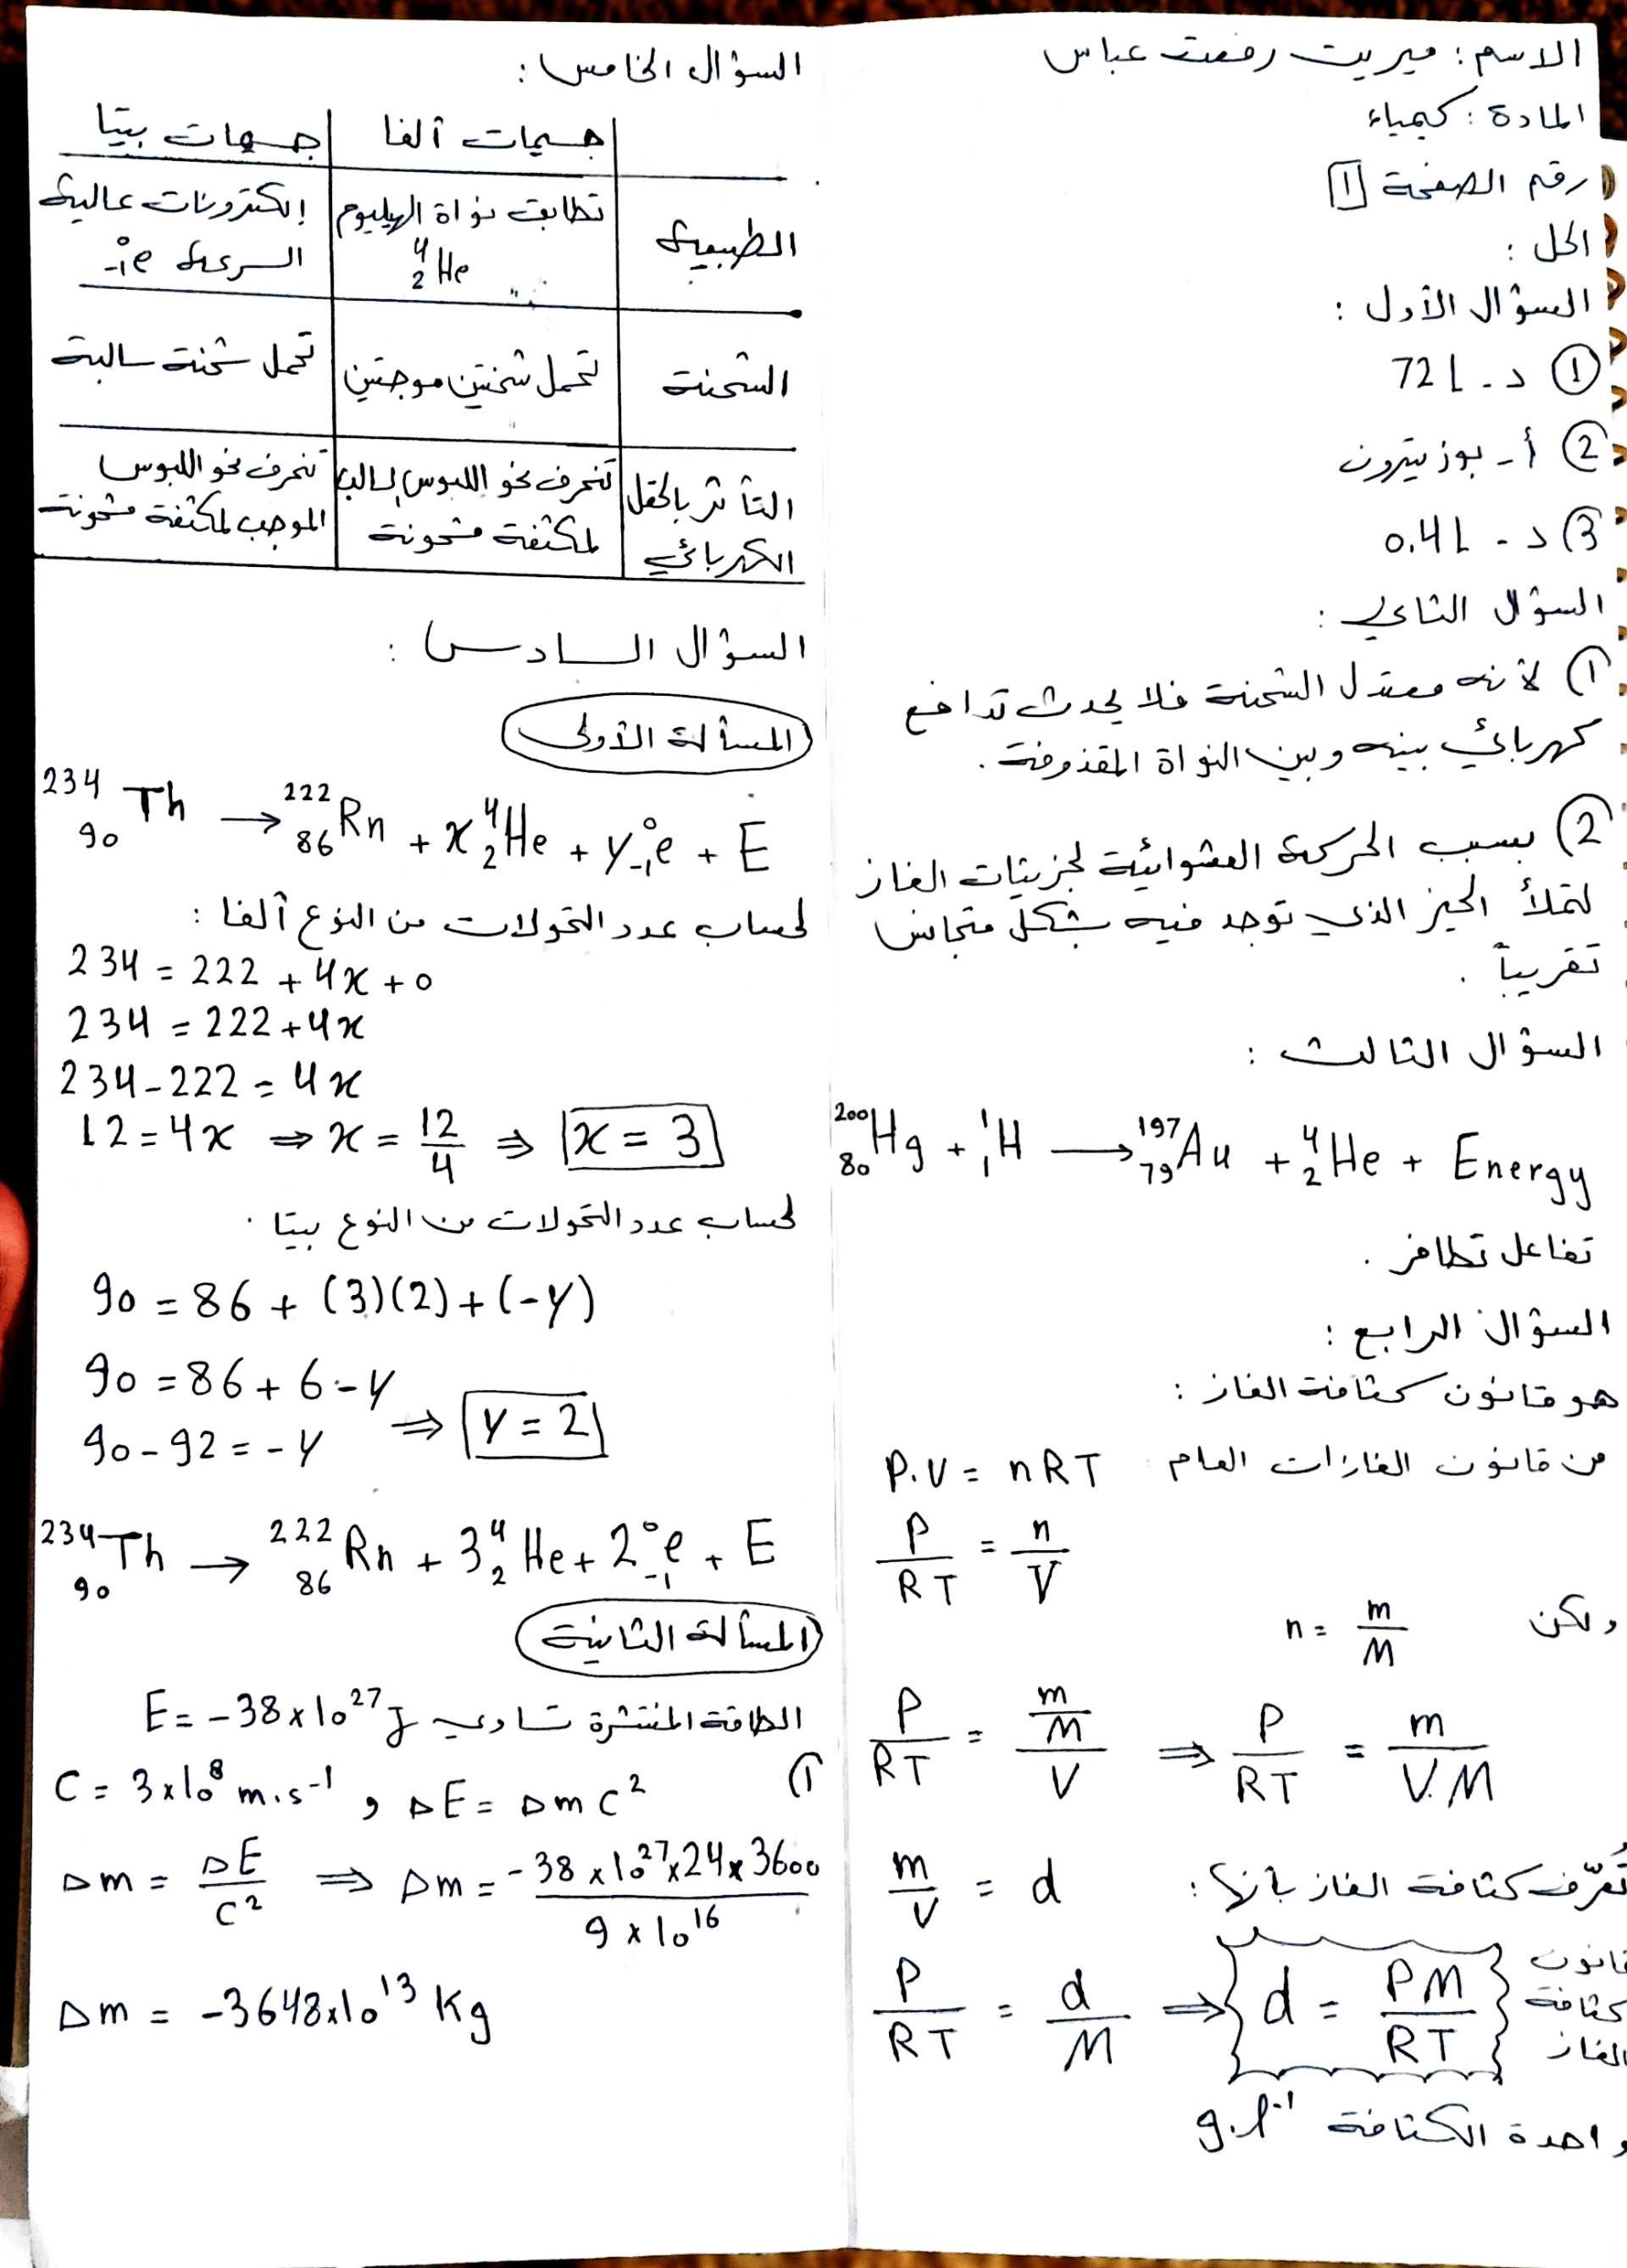 الاسم : ميريت رفعت عباس
المادة : كيمياء
رقم الصفحة 1
الحل :
السؤال الأول :
① د - 72 L
② أ - بوزيترون
③ د - 0.4 L
السؤال الثاني :
① لأنه معتدل الشحنة فلا يحدث تدافع
كهربائي بينه وبين النواة المقذوفة .
② بسبب الحركة العشوائية لجزيئات الغاز
لتملأ الحيز الذي توجد فيه بشكل متجانس
تقريباً .
السؤال الثالث :
²⁰⁰₈₀Hg + ¹₁H → ¹⁹⁷₇₉Au + ⁴₂He + Energy
تفاعل تطافر .
السؤال الرابع :
هو قانون كثافة الغاز :
من قانون الغازات العام P.V = nRT
P/RT = n/V
ولكن n = m/M
P/RT = (m/M)/V ⇒ P/RT = m/V.M
تُعرّف كثافة الغاز بأنها : m/V = d
P/RT = d/M ⇒ d = PM/RT قانون كثافة الغاز
واحدة الكثافة g.l⁻¹
السؤال الخامس :
جسيمات ألفا | جسيمات بيتا
الطبيعة | تطابق نواة الهيليوم ⁴₂He | إلكترونات عالية السرعة ⁰₋₁e
الشحنة | تحمل شحنتين موجبتين | تحمل شحنة سالبة
التأثر بالحقل الكهربائي | تنحرف نحو اللبوس السالب لمكثفة مشحونة | تنحرف نحو اللبوس الموجب لمكثفة مشحونة
السؤال السادس :
المسألة الأولى
²³⁴₉₀Th → ²²²₈₆Rn + x⁴₂He + y⁰₋₁e + E
لحساب عدد التحولات من النوع ألفا :
234 = 222 + 4x + 0
234 = 222 + 4x
234 - 222 = 4x
12 = 4x ⇒ x = 12/4 ⇒ x = 3
لحساب عدد التحولات من النوع بيتا .
90 = 86 + (3)(2) + (-y)
90 = 86 + 6 - y
90 - 92 = - y ⇒ y = 2
²³⁴₉₀Th → ²²²₈₆Rn + 3⁴₂He + 2⁰₋₁e + E
المسألة الثانية
الطاقة المنتشرة تساوي E = -38 × 10²⁷ J
① C = 3 × 10⁸ m.s⁻¹ , ΔE = Δm C²
Δm = ΔE/C² ⇒ Δm = -38 × 10²⁷ × 24 × 3600 / 9 × 10¹⁶
Δm = -3648 × 10¹³ Kg